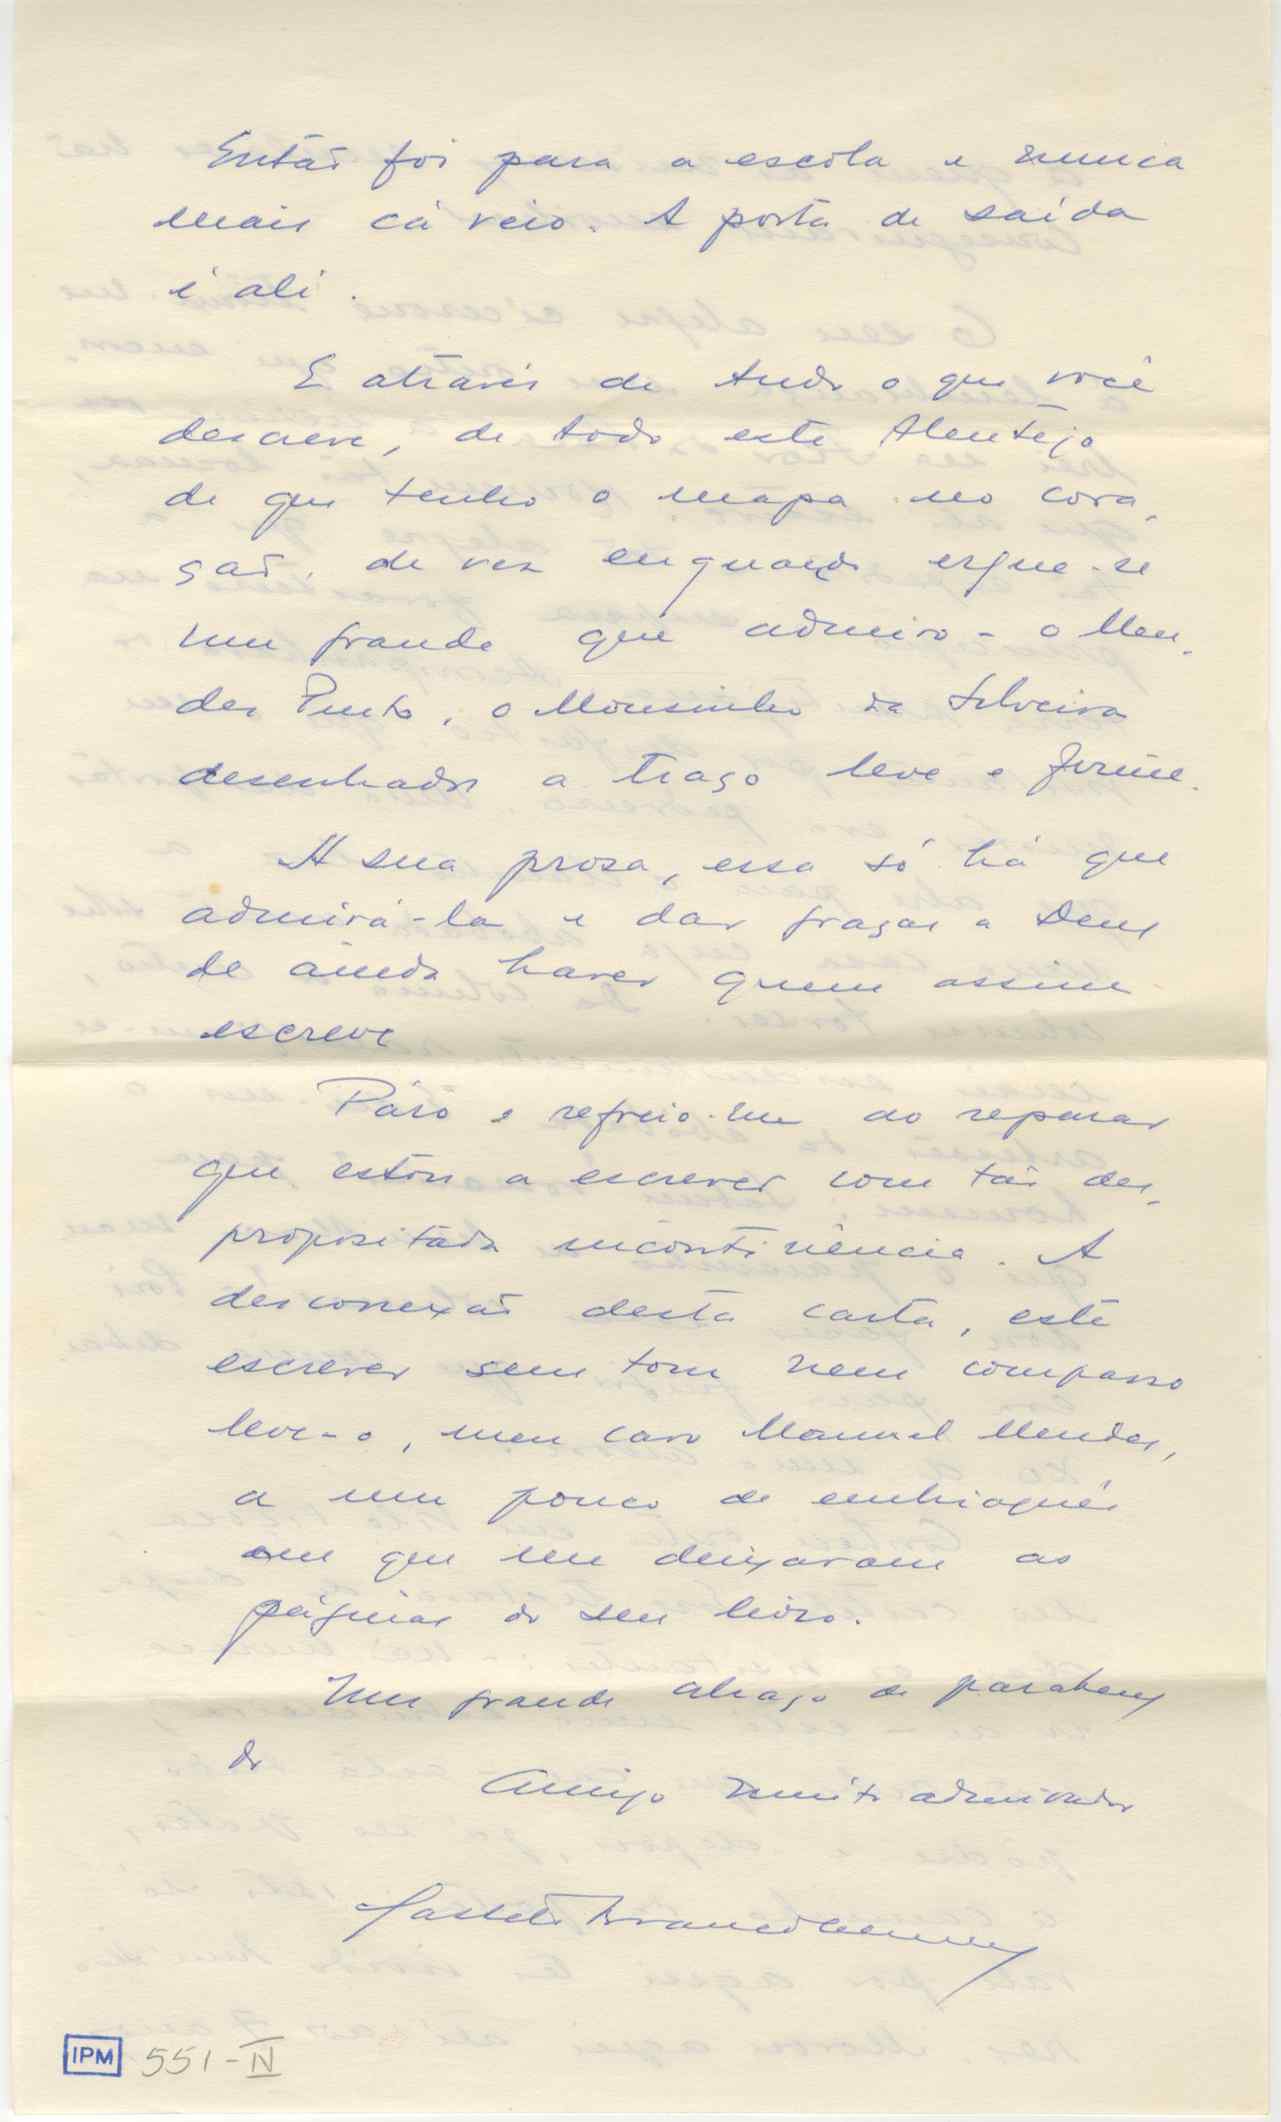 Então foi para a escola e nunca
mais cá veio. A porta de saída
é ali.
E através de tudo o que você
descreve, de todo este Alentejo
de que tenho o mapa no cora-
ção, de vez enquando ergue-se
um grande que admiro - o Men-
des Pinto, o Mousinho da Silveira
desenhados a traço leve e firme.
A sua prosa, essa só há que
admirá-la e dar graças a Deus
de ainda haver quem assim
escreve
Páro e refreio-me ao reparar
que estou a escrever com tão des-
propositada incontinência. A
desconexão desta carta, este
escrever sem tom nem compasso
leve-o, meu caro Manuel Mendes,
a um pouco de embriaguês
em que me deixaram as
páginas do seu livro.
Um grande abraço de parabens
do
Amigo muito admirador
Castelo Branco
IPM 551-IV